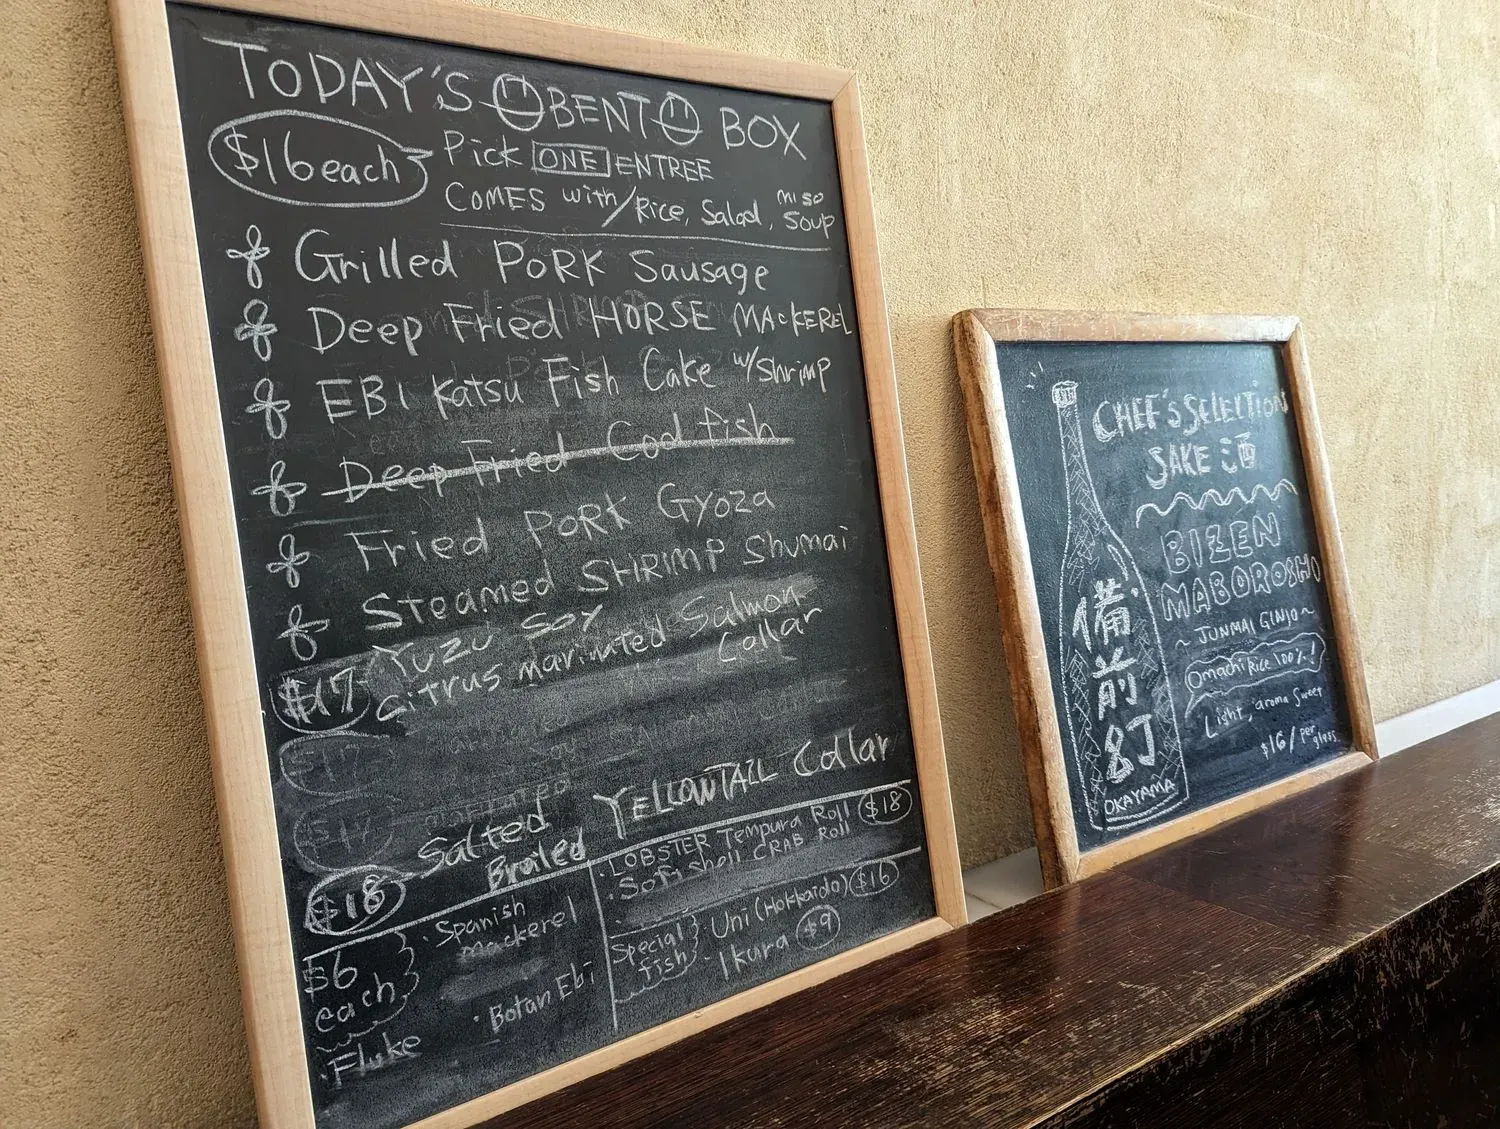 TODAY'S BENTO BOX
$16 each
Pick ONE ENTREE
COMES with/Rice, Salad, miso soup
Grilled PORK Sausage
Deep Fried HORSE MACKEREL
EBI Katsu Fish Cake w/shrimp
Deep Fried Cod fish
Fried PORK Gyoza
STEAMED SHRIMP Shumai
$17
Yuzu SOY
Citrus marinated Salmon
Collar
$18
Salted
Broiled
YELLOWTAIL Collar
$6
each
· Spanish
mackerel
· Botan Ebi
· Fluke
· LOBSTER Tempura Roll $18
· Soft shell CRAB Roll
Special
fish
· Uni (Hokkaido) $16
· Ikura $9
CHEF'S SELECTION
SAKE 酒
BIZEN
MABOROSHI
~ JUNMAI GINJO ~
Omachi Rice 100%!
Light, aroma Sweet
$16/per
glass
備
前
幻
OKAYAMA